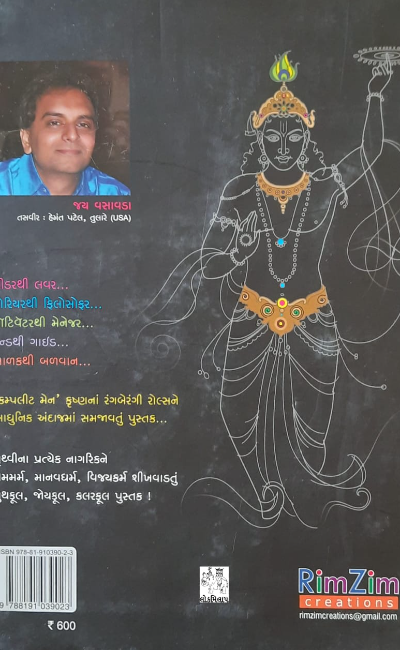 જય વસાવડા
તસવીર : હેમંત પટેલ, તુલારે (USA)
લીડરથી લવર...
વોરિયરથી ફિલોસોફર...
મોટિવેટરથી મેનેજર...
ફ્રેન્ડથી ગાઈડ...
બાળકથી બળવાન...
'કમ્પલીટ મેન' કૃષ્ણનાં રંગબેરંગી રોલ્સને
આધુનિક અંદાજમાં સમજાવતું પુસ્તક...
પૃથ્વીના પ્રત્યેક નાગરિકને
માનવધર્મ, વિજયકર્મ શીખવાડતું
યુથફૂલ, જોયફૂલ, કલરફૂલ પુસ્તક !
ISBN 978-81-910390-2-3
9 788191 039023
₹ 600
લોકમિલાપ
RimZim
creations
rimzimcreations@gmail.com